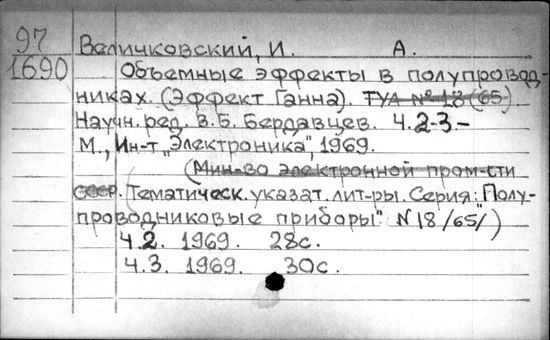 97 Величковский, И. А.
1690 Объемные эффекты в полупровод-
никах. (Эффект Ганна). ТУЛ № 18 (65)
Научн. ред. В.Б. Бердавцев. Ч.2-3.-
М., Ин-т „Электроника", 1969.
(Мин-во электронной пром-сти
СССР. Тематическ. указат. лит-ры. Серия: "Полу-
проводниковые приборы". N 18/65/)
Ч.2. 1969. 28с.
Ч.3. 1969. 30с.